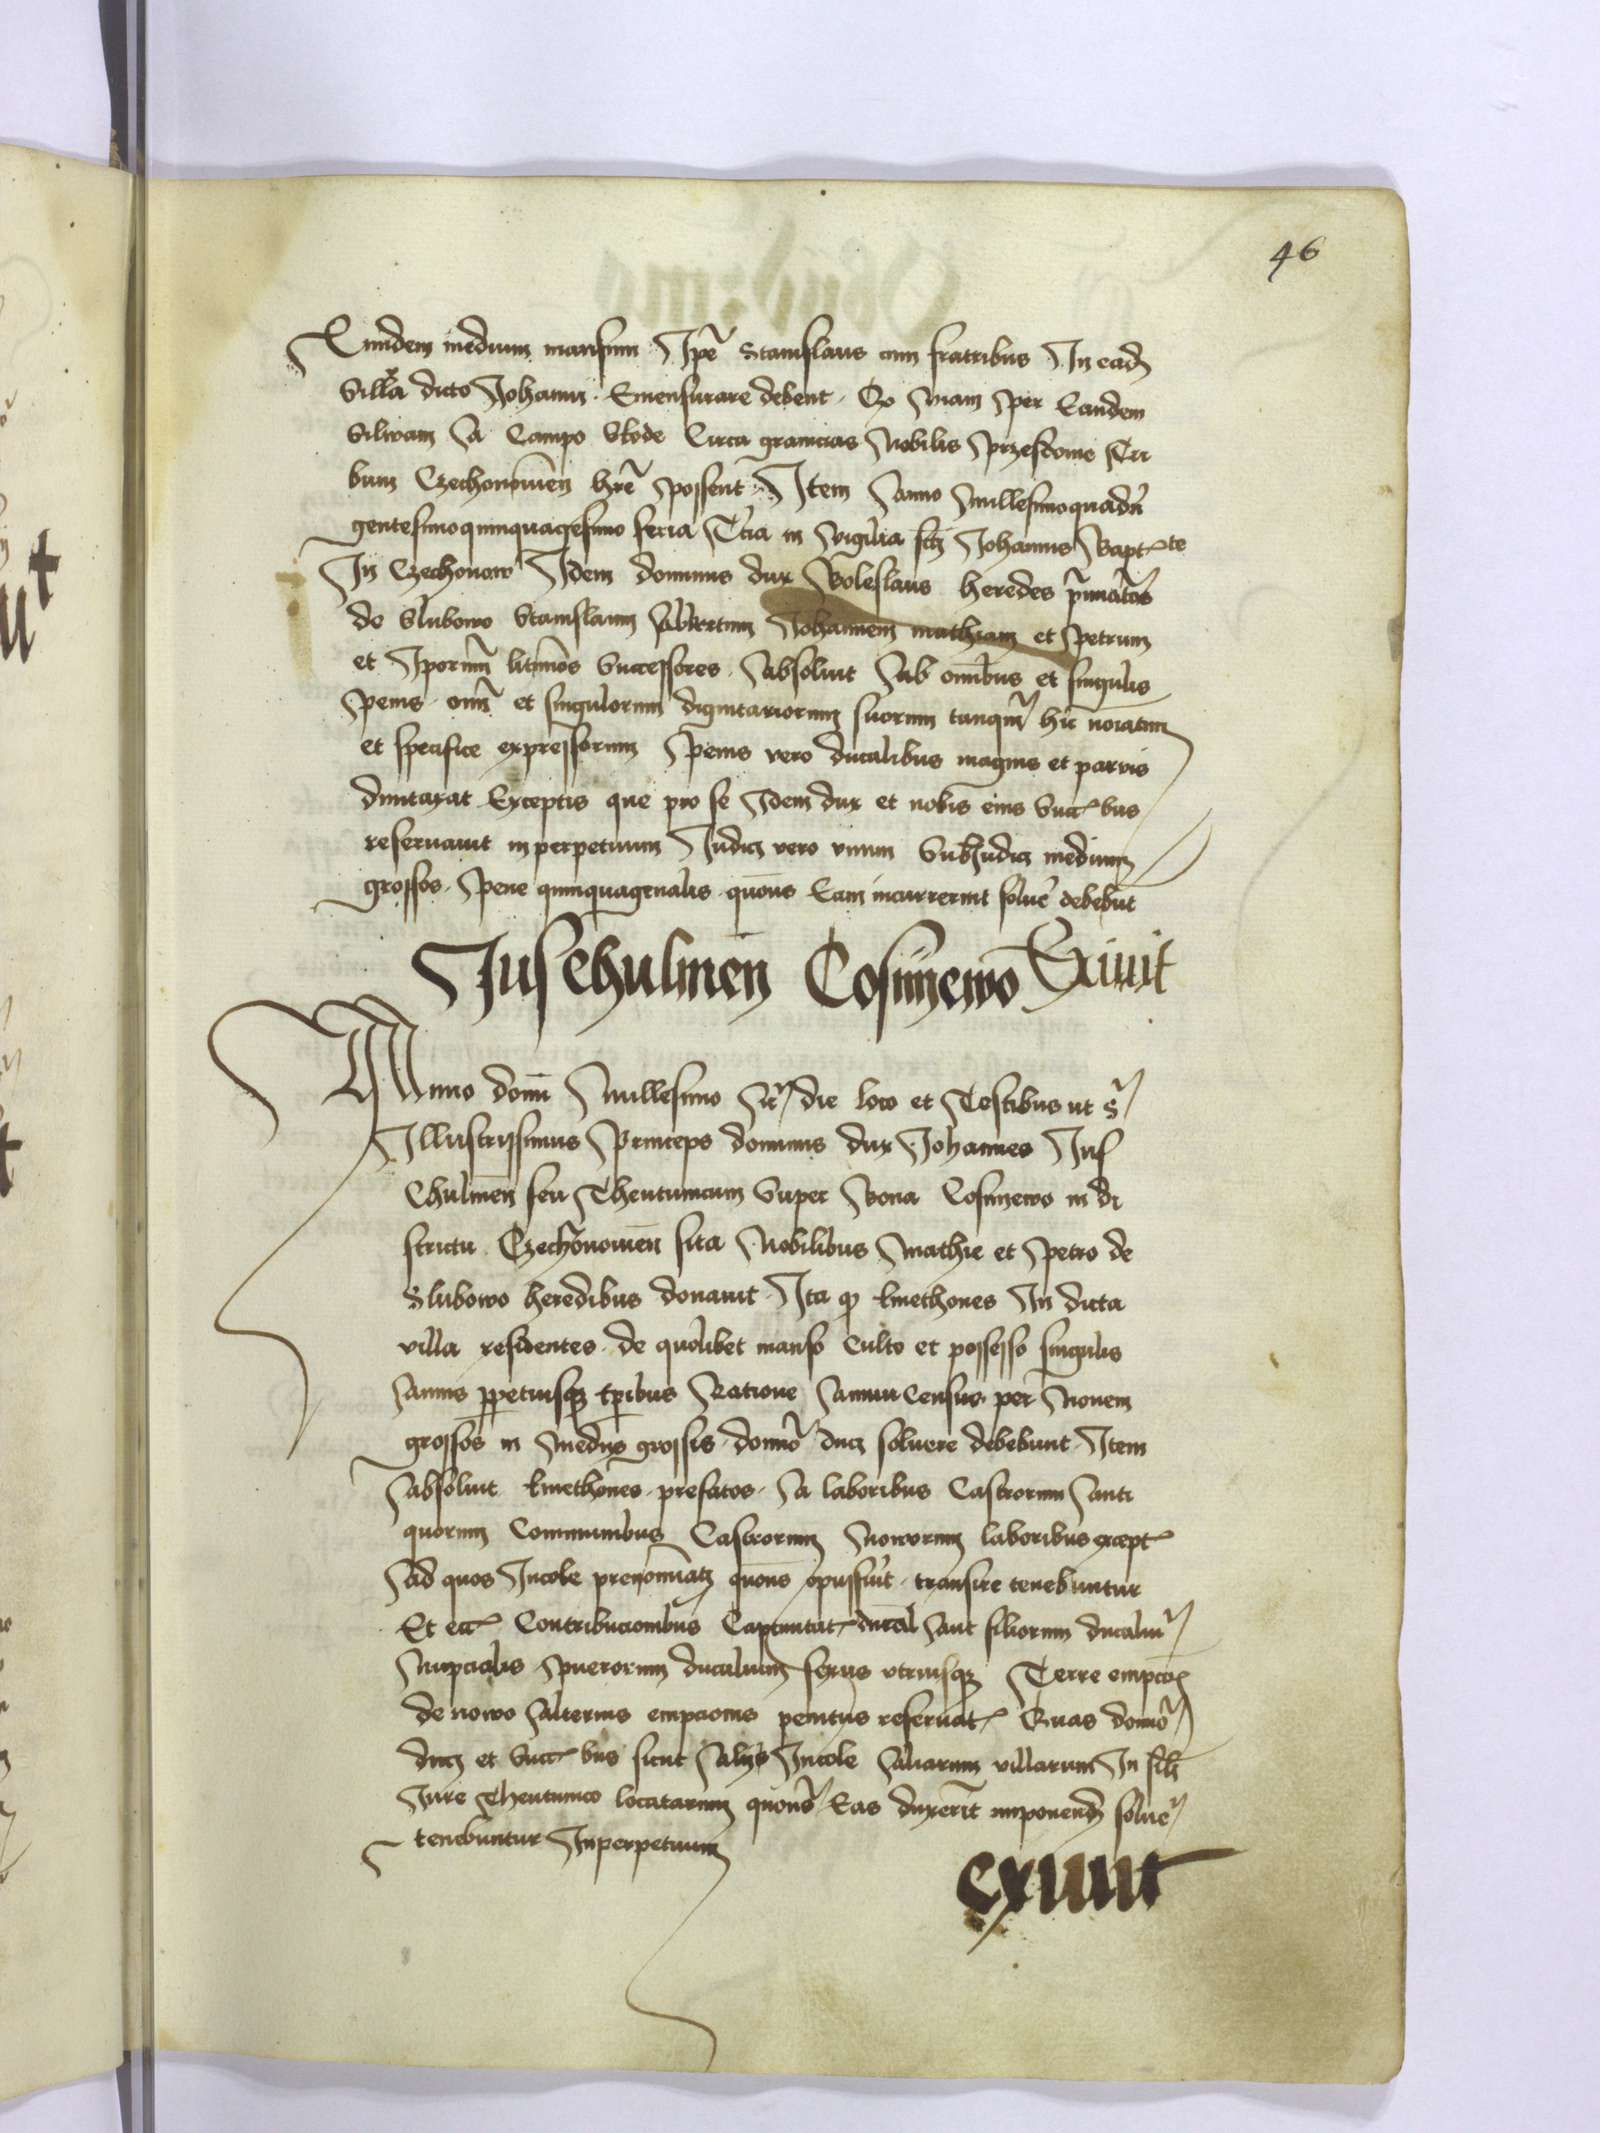 46
Quidem medium mansum Ipē Stanislaus cum fratribus In ead
villa dicto Johanni Emensurare debent Et viam per Eandem
silwam A Campo Clode Circa granicias Nobilis
bum Czechonowien hrē possent Item Anno Millesimoquadri
gentesimoquinquagesimo feria Tcia in vigilia sci Johannis Bapt te
In Czechonow Idem dominus dux Boleslaus heredes
de Slubowo Stanislaum Albertum Johannem mathiam et petrum
et Iporum litimos Successores Absoluit Ab omibus et singulis
penis omi et singulorum dignitariorum suorum tanqm hic noiatim
et specifice expressorum penis vero ducalibus magnis et parvis
dumtaxat Exceptis que pro se Idem dux et nobis eius Succ bus
reseruauit inperpetuum Judici vero unum SubJudici medium
grossos pene quinquagenalis quons Eam incurrerint solue debebut
Jus Chulmen Cosmyewo Exiuit
Anno domi Millesimo etc die loco et Testibus ut s
Illustrissimus Princeps dominus dux Johannes Jus
Chulmen seu Theutunicum Super Bona Cosmyewo in di
strictu Czechonowien sita Nobilibus Mathie et Petro de
Slubowo heredibus donauit Ita q kmethones In dicta
villa residentes de quolibet manso Culto et possesso singulis
Annis ppetuisq tpibus Ratione Annui Census per Novem
grossos in Medys grossis domio duci soluere debebunt Item
Absoluit kmethones prefatos A laboribus Castrorum Anti
quorum Communibus Castrorum Noworum laboribus except
Ad quos Incole prenominati quons opusfuit transire tenebuntur
Et ecc Contribucionibus Captiuitat ducal Aut filiorum ducaliu
Nupcialis puerorum ducalium sexus utriusq Terre empcois
de nowo Alterius empcionis penitus reseruat Quas domio
duci et Succ bus sicut Alys Incole Aliarum villarum In sili
Jure Theutunico locatarum quons Eas duxerit imponend solue
tenebuntur Inperpetuum
exiuit